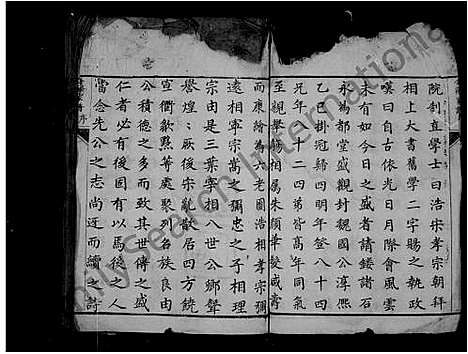 院剑直學士曰浩宋孝宗朝拜
相上大書舊學二字賜之執政
嘆曰自古依光日月際會風雲
未有如今日之盛者請鏤諸石
永為都堂盛觀封魏國公淳熙
乙巳掛冠歸四明年登八十四
兄年八十二四弟皆髙年同氣
至親舉觴相属朱顔華髮咸壽
而康繪為六老圖浩相孝宗彌
遠相寧宗嵩之彌忠之子相理
宗由是三葉宰相八世公卿聲
譽煌煌厥後宋亂散居四方饒
宣衢歙黟等處聚爲名族良由
公積德之多而致其世傳之盛
仁者必有後固有以焉後之人
當念先公之志尚近而續之詩